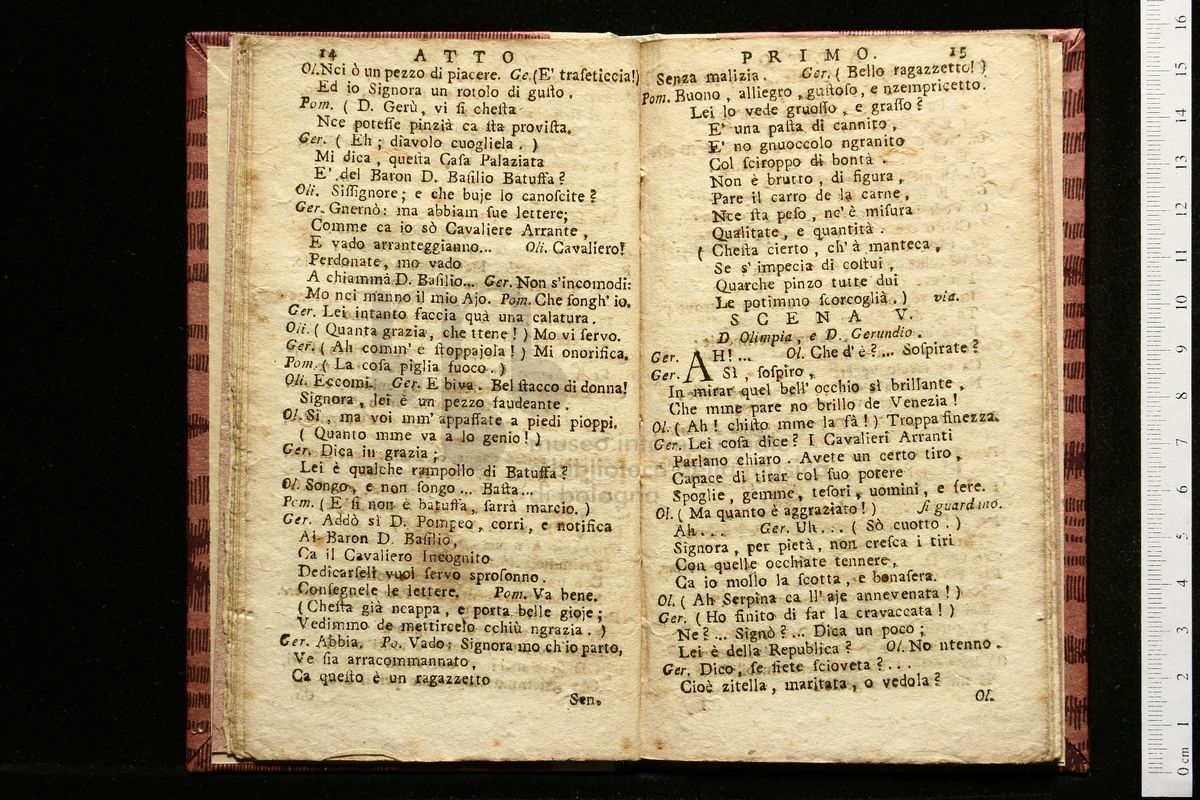 14 ATTO
Ol. Nci ò un pezzo di piacere. Ge. (E' traſeticcia!)
Ed io Signora un rotolo di guſto.
Pom. ( D. Gerù, vi ſi cheſta
Nce poteſſe pinzià ca ſta proviſta.
Ger. ( Eh ; diavolo cuogliela . )
Mi dica , queſta Caſa Palaziata
E' del Baron D. Baſilio Batuffa ?
Oli. Siſſignore ; e che buje lo canoſcite ?
Ger. Gnernò : ma abbiam ſue lettere;
Comme ca io sò Cavaliere Arrante ,
E vado arranteggianno... Oli. Cavaliero!
Perdonate, mo vado
A chiammà D. Baſilio... Ger. Non s'incomodi:
Mo nci manno il mio Ajo. Pom. Che ſongh' io.
Ger. Lei intanto faccia quà una calatura .
Oli. ( Quanta grazia, che ttene ! ) Mo vi ſervo.
Ger. ( Ah comm' è ſtoppajola ! ) Mi onorifica.
Pom. ( La coſa piglia fuoco . )
Oli. Eccomi. Ger. E biva . Bel ſtacco di donna!
Signora , lei è un pezzo faudeante .
Ol. Sì , ma voi mm' appaſſate a piedi pioppi.
( Quanto mme va a lo genio ! )
Ger. Dica in grazia ;
Lei è qualche rampollo di Batuffa ?
Ol. Songo , e non ſongo ... Baſta ...
Pom. ( E ſi non è batuffa , ſarrà marcio. )
Ger. Addò sì D. Pompeo , corri , e notifica
Al Baron D. Baſilio,
Ca il Cavaliero Incognito
Dedicarſeli vuol ſervo sproſonno .
Conſegnele le lettere. Pom. Va bene.
( Cheſta già ncappa , e porta belle gioje ;
Vedimmo de mettircelo cchiù ngrazia . )
Ger. Abbia. Po. Vado: Signora mo ch'io parto,
Ve ſia arracommannato,
Ca queſto è un ragazzetto
Sen.
PRIMO. 15
Senza malizia . Ger. ( Bello ragazzetto! )
Pom. Buono , alliegro , guſtoſo , e nzempricetto.
Lei lo vede gruoſſo , e graſſo ?
E' una paſta di cannito ,
E' no gnuoccolo ngranito
Col ſciroppo di bontà .
Non è brutto , di figura ,
Pare il carro de la carne ,
Nce ſta peſo , nc' è miſura
Qualitate , e quantità .
( Cheſta cierto , ch' à manteca ,
Se s' impecia di coſtui ,
Quarche pinzo tutte dui
Le potimmo ſcorcoglià . ) via.
SCENA V.
D. Olimpia , e D. Gerundio .
Ger. AH! ... Ol. Che d' è ? ... Soſpirate ?
Ger. Sì , ſoſpiro ,
In mirar quel bell' occhio sì brillante ,
Che mme pare no brillo de Venezia !
Ol. ( Ah ! chiſto mme la fà ! ) Troppa finezza.
Ger. Lei coſa dice ? I Cavalieri Arranti
Parlano chiaro . Avete un certo tiro ,
Capace di tirar col ſuo potere
Spoglie , gemme , teſori , uomini , e fere.
Ol. ( Ma quanto è aggraziato ! ) ſi guardano.
Ah . . . Ger. Uh . . . ( Sò cuotto . )
Signora , per pietà , non creſca i tiri
Con quelle occhiate tennere ,
Ca io mollo la ſcotta , e bonaſera.
Ol. ( Ah Serpina ca ll' aje annevenata ! )
Ger. ( Ho finito di far la cravaccata ! )
Ne ? ... Signò ? ... Dica un poco ;
Lei è della Republica ? Ol. No ntenno .
Ger. Dico , ſe ſiete ſcioveta ? . . .
Cioè zitella , maritata , o vedola ?
Ol.